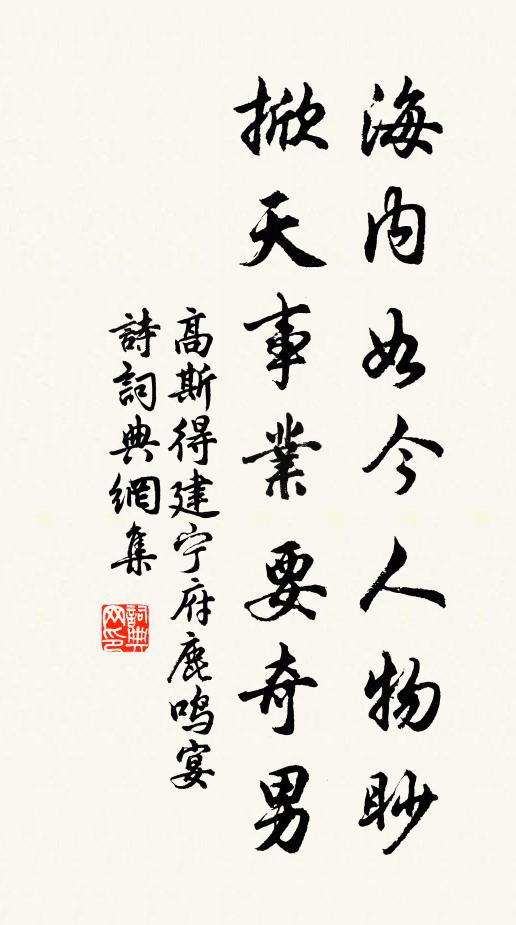 海内如今人物眇
掀天事業要奇男
高斯得建宁府鹿鸣宴
詩詞典網集
詞典网印